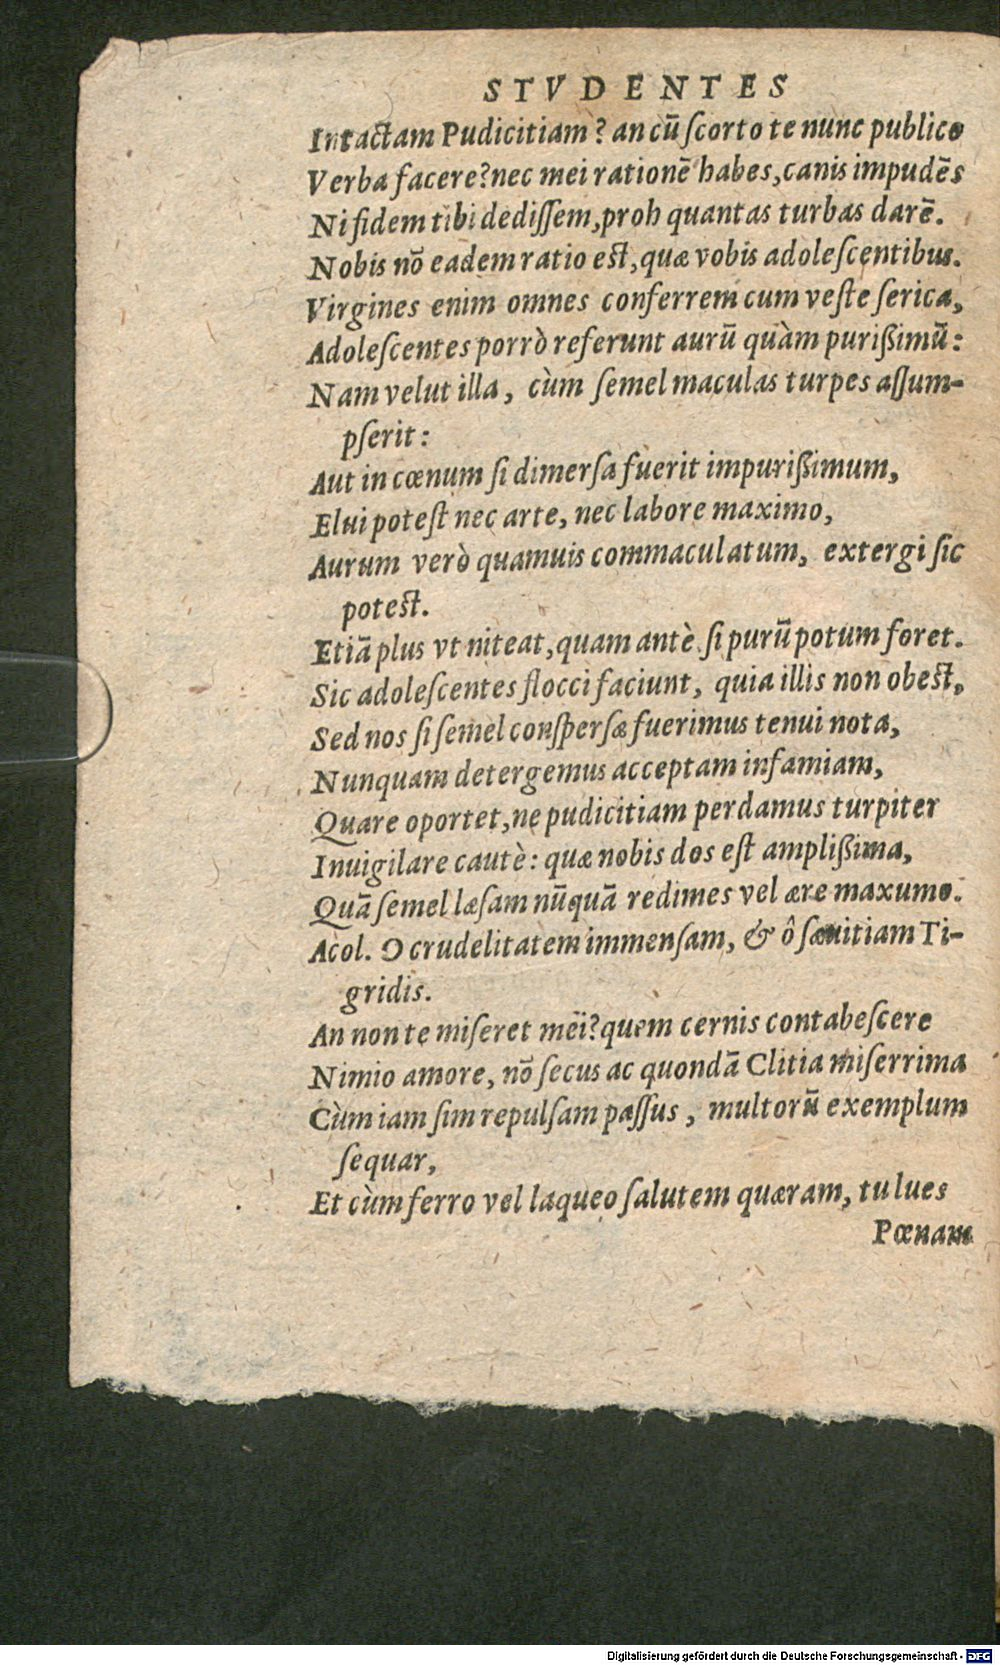 STVDENTES
Intactam Pudicitiam? an cũ ſcorto te nunc publico
Verba facere? nec mei rationẽ habes, canis impudẽs
Ni fidem tibi dediſſem, proh quantas turbas darẽ.
Nobis nõ eadem ratio eſt, quæ vobis adoleſcentibus.
Virgines enim omnes conferrem cum veſte ſerica,
Adoleſcentes porrò referunt aurũ quàm purißimũ:
Nam velut illa, cùm ſemel maculas turpes aſſum-
pſerit:
Aut in cœnum ſi dimerſa fuerit impurißimum,
Elui poteſt nec arte, nec labore maximo,
Aurum verò quamuis commaculatum, extergi ſic
poteſt.
Etiã plus vt niteat, quam antè ſi purũ potum foret.
Sic adoleſcentes flocci faciunt, quia illis non obeſt,
Sed nos ſi ſemel conſperſæ fuerimus tenui nota,
Nunquam detergemus acceptam infamiam,
Quare oportet, ne pudicitiam perdamus turpiter
Inuigilare cautè: quæ nobis dos eſt amplißima,
Quã ſemel læſam nũquã redimes vel ære maxumo.
Acol. O crudelitatem immenſam, & ô ſæuitiam Ti-
gridis.
An non te miſeret mei? quem cernis contabeſcere
Nimio amore, nõ ſecus ac quondã Clitia miſerrima
Cùm iam ſim repulſam paſſus, multorũ exemplum
ſequar,
Et cùm ferro vel laqueo ſalutem quæram, tu lues
Pœnam
Digitalisierung gefördert durch die Deutsche Forschungsgemeinschaft - DFG